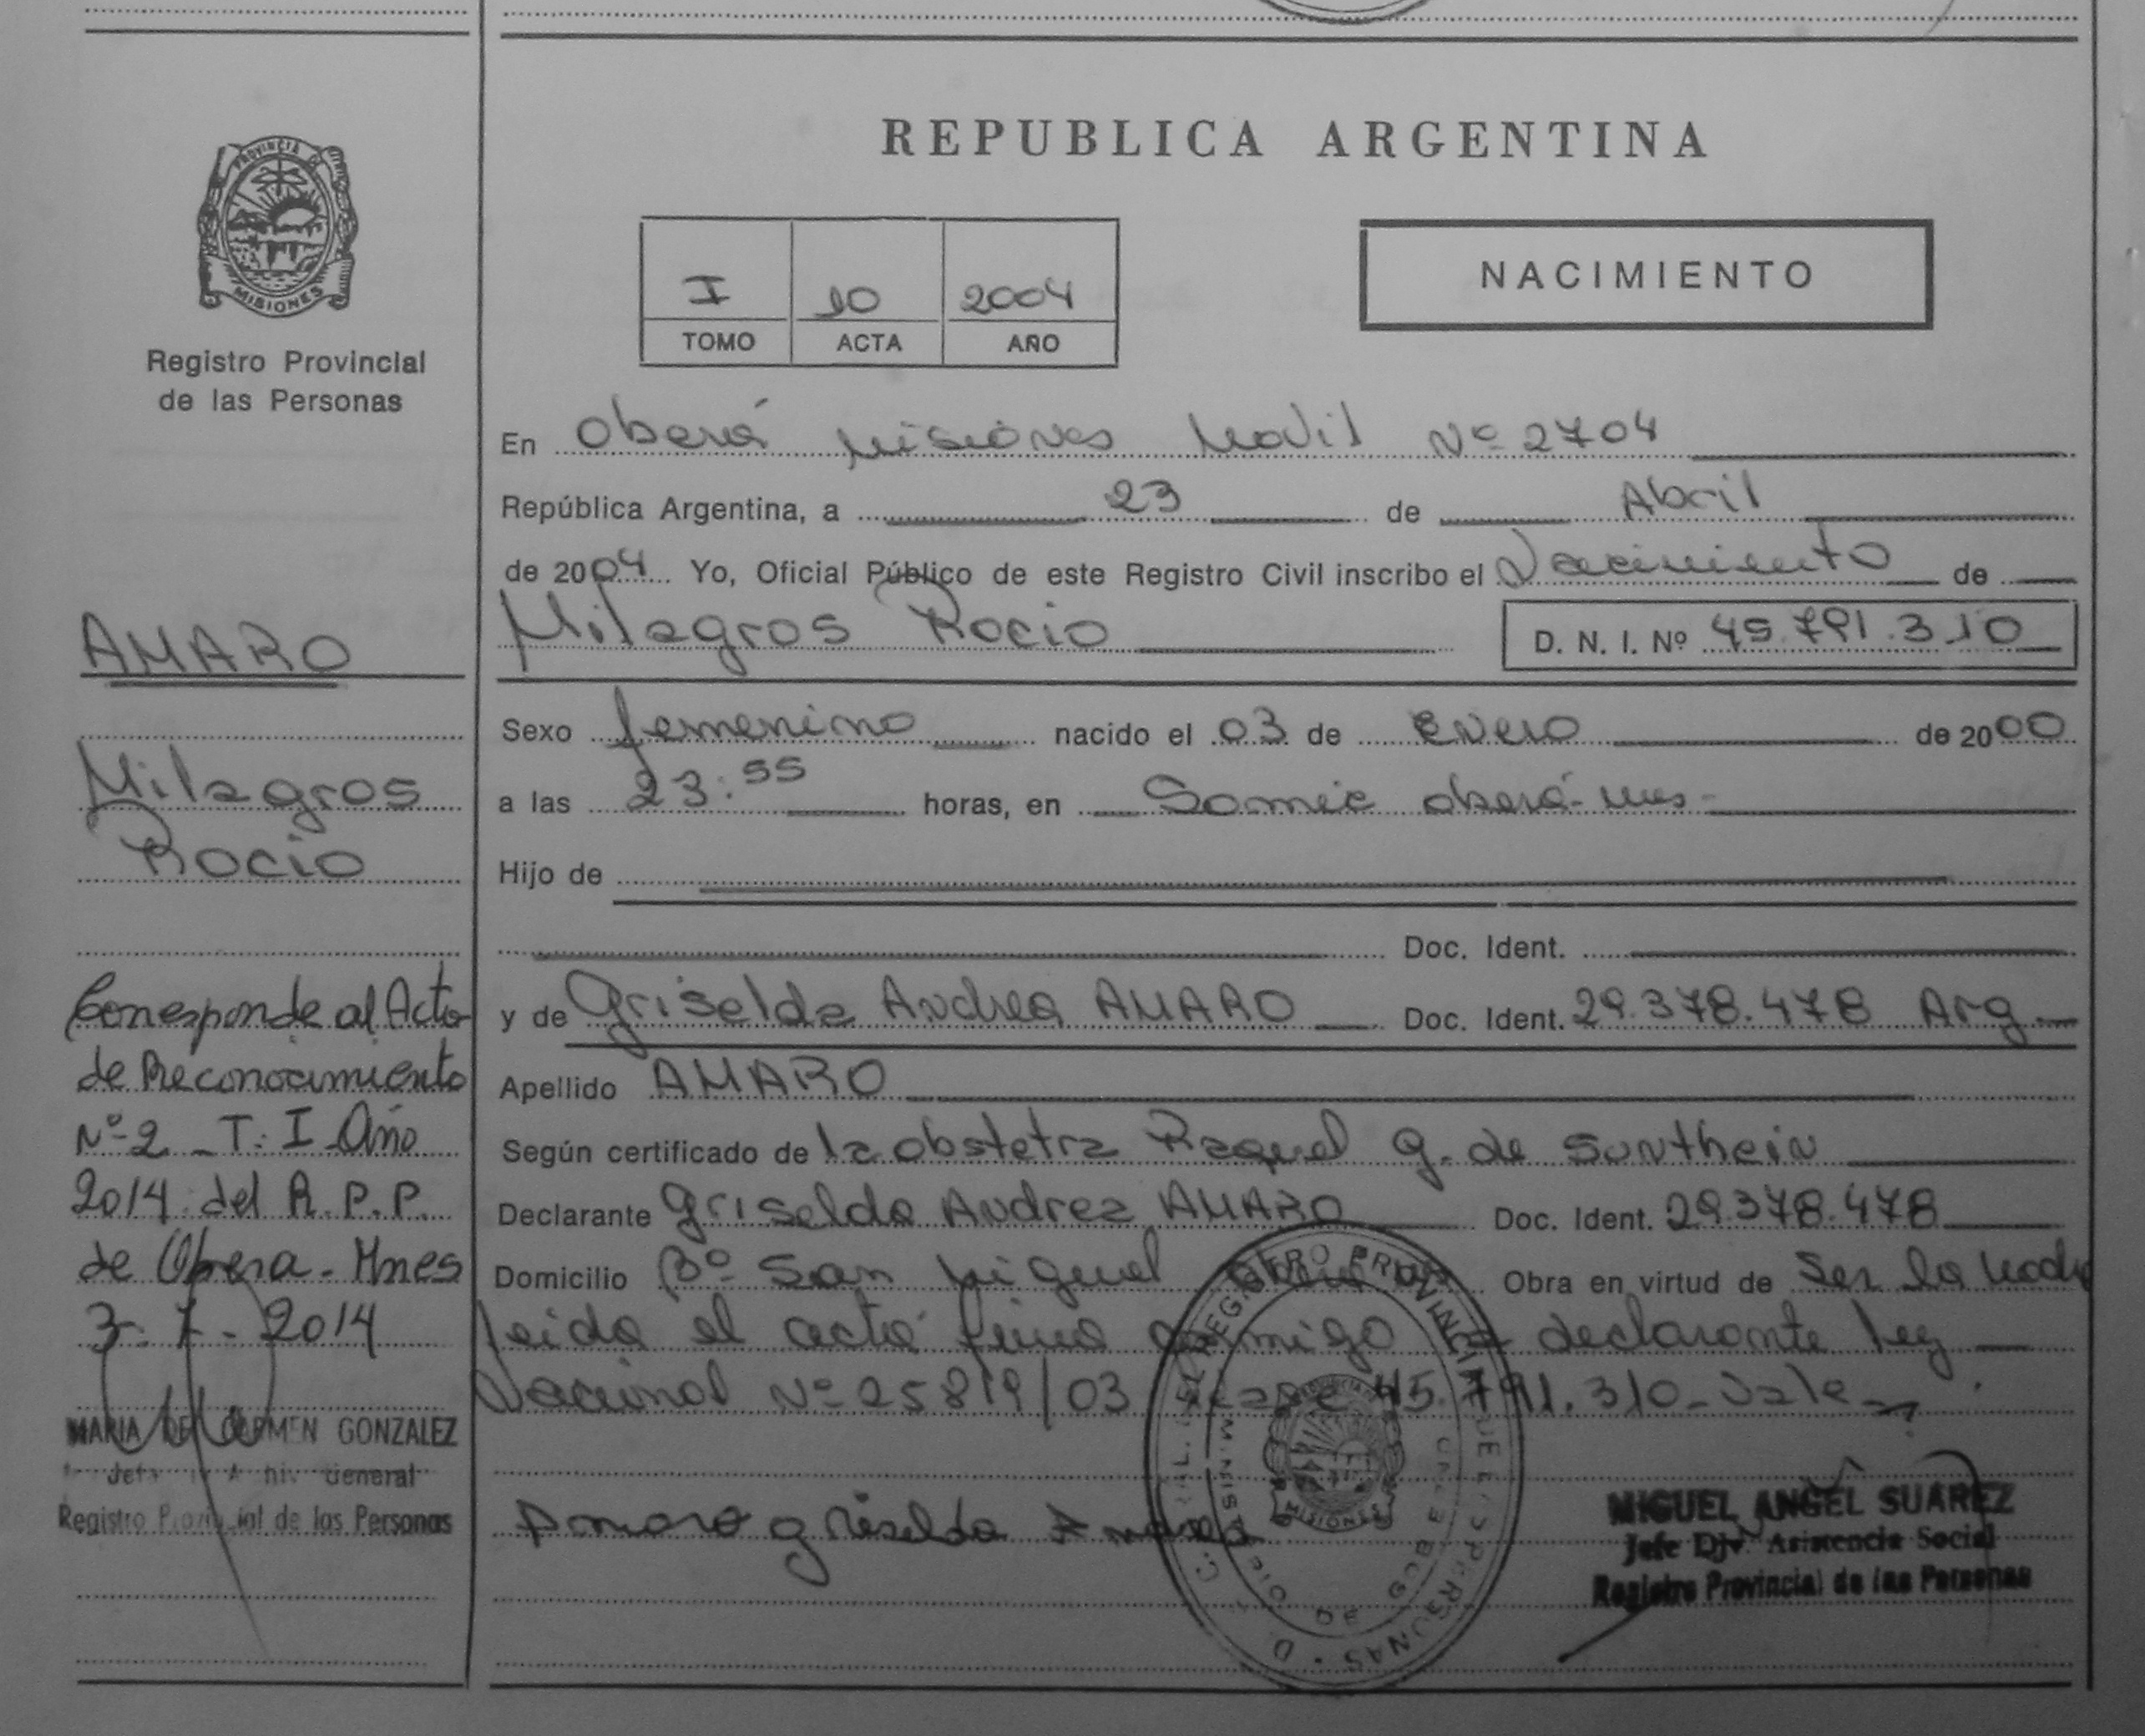 REPUBLICA ARGENTINA
PROVINCIA DE
MISIONES
Registro Provincial
de las Personas
I 10 2004
TOMO ACTA AÑO
NACIMIENTO
En Oberá Misiones Movil Nº 2704
República Argentina, a 23 de Abril
de 2004 Yo, Oficial Público de este Registro Civil inscribo el Nacimiento de
Milagros Rocio D. N. I. Nº 45.791.310
Sexo femenino nacido el 03 de Enero de 2000
a las 23:55 horas, en Samic oberá-Mes-
Hijo de
Doc. Ident.
y de Griselda Andrea AMARO Doc. Ident. 29.378.478 Arg.
Apellido AMARO
Según certificado de la obstetra Raquel G. de Sunthein
Declarante Griselda Andrea AMARO Doc. Ident. 29.378.478
Domicilio Bº San Miguel Obra en virtud de Ser la Madre
leida el acta firma conmigo la declarante ley
Nacional Nº 25819/03 45.791.310-Vale
Amaro griselda Andrea
MIGUEL ANGEL SUAREZ
Jefe Div. Asistencia Social
Registro Provincial de las Personas
AMARO
Milagros
Rocio
Corresponde al Acta
de Reconocimiento
Nº 2 _ T: I Año
2014 del R.P.P.
de Obera - Mnes
3-7-2014
MARIA DEL CARMEN GONZALEZ
General
Registro Provincial de las Personas
REGISTRO PROVINCIAL DE LAS PERSONAS
MINISTERIO DE GOBIERNO
MISIONES